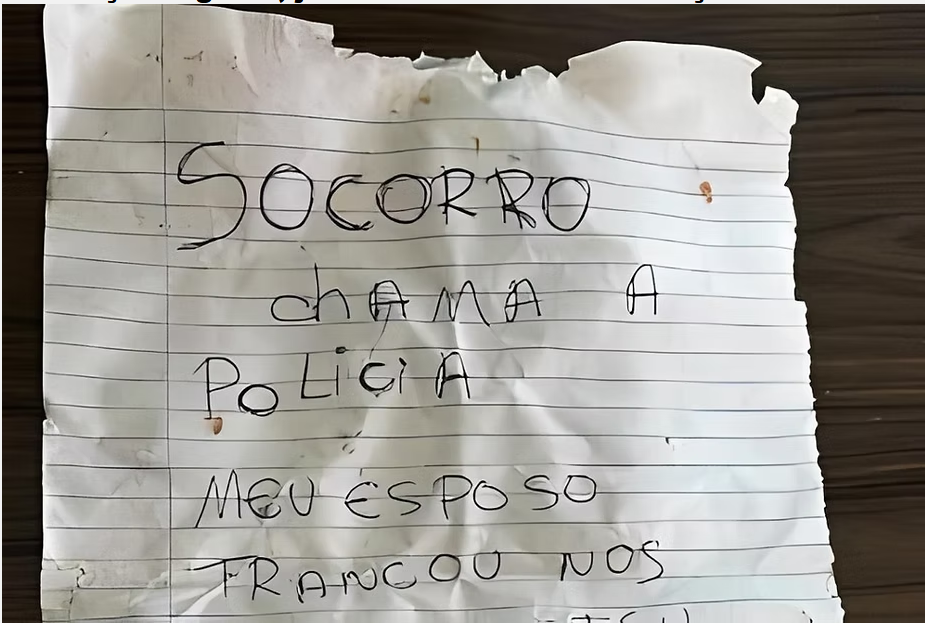 SOCORRO
chAMA A
PoLiCiA
MEU ESPOSO
TRANCOU NOS